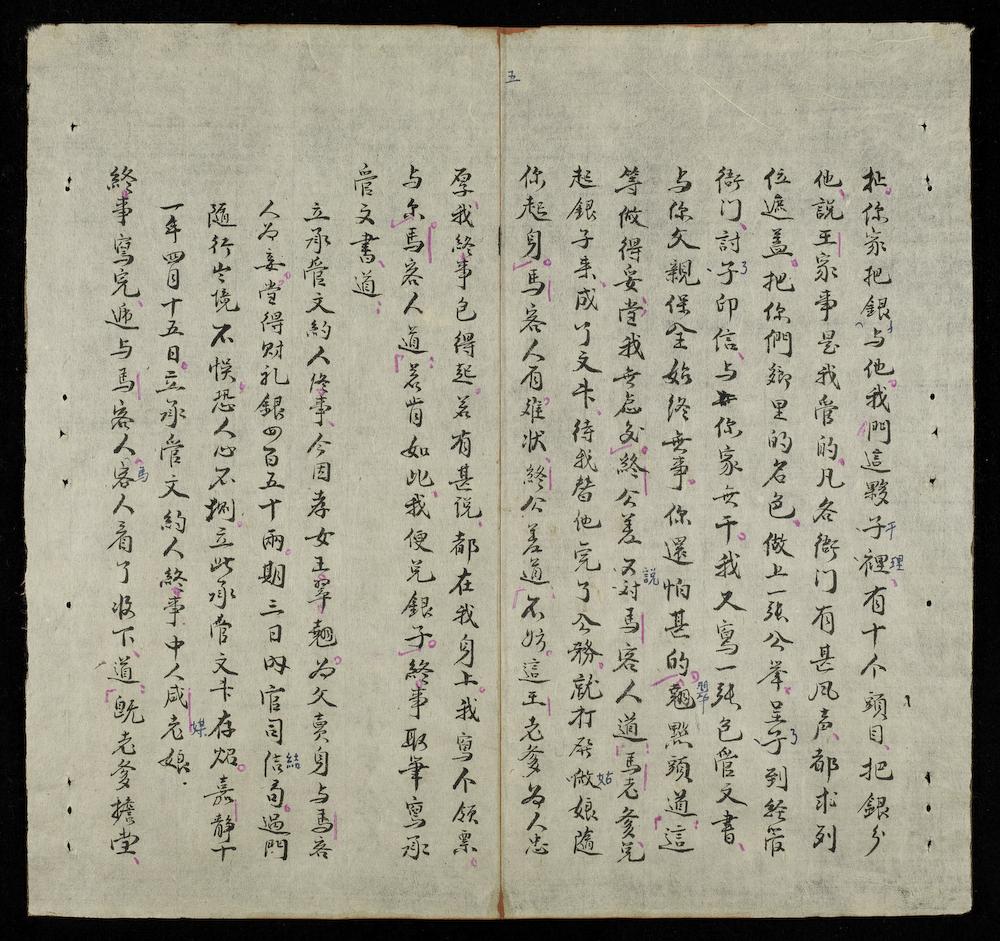 五
扯你家把銀与他我們這夥子裡有十个頭目把銀分
他說王家事是我管的凡各衙门有甚風声都求列
位遮盖把你們鄉里的名色做上一張公举呈子到經管
衙门討了印信与你家無干我又寫一張包管文書
与你父親保全始終無事你還怕甚的翹點頭道這
等做得妥当我無慮矣終公差又对馬客人道馬老爹兑
起銀子来成了文书待我替他完了公務就打發姑娘隨
你起身馬客人有难状終公差道不妨這王老爹为人忠
厚我終事包得起若有甚説都在我身上我寫个领票
与尔馬客人道若肯如此我便兑銀子終事取筆寫承
管文書道
立承管文約人终事今因孝女王翠翹为父賣身与馬客
人为妾當得財礼銀四百五十兩期三日内官司結局過門
隨行出境不悞恐人心不測立此承管文书存炤嘉靜十
一年四月十五日立承管文約人終事中人咸老娘
終事寫完逓与馬客人客人看了收下道既老爹擔當